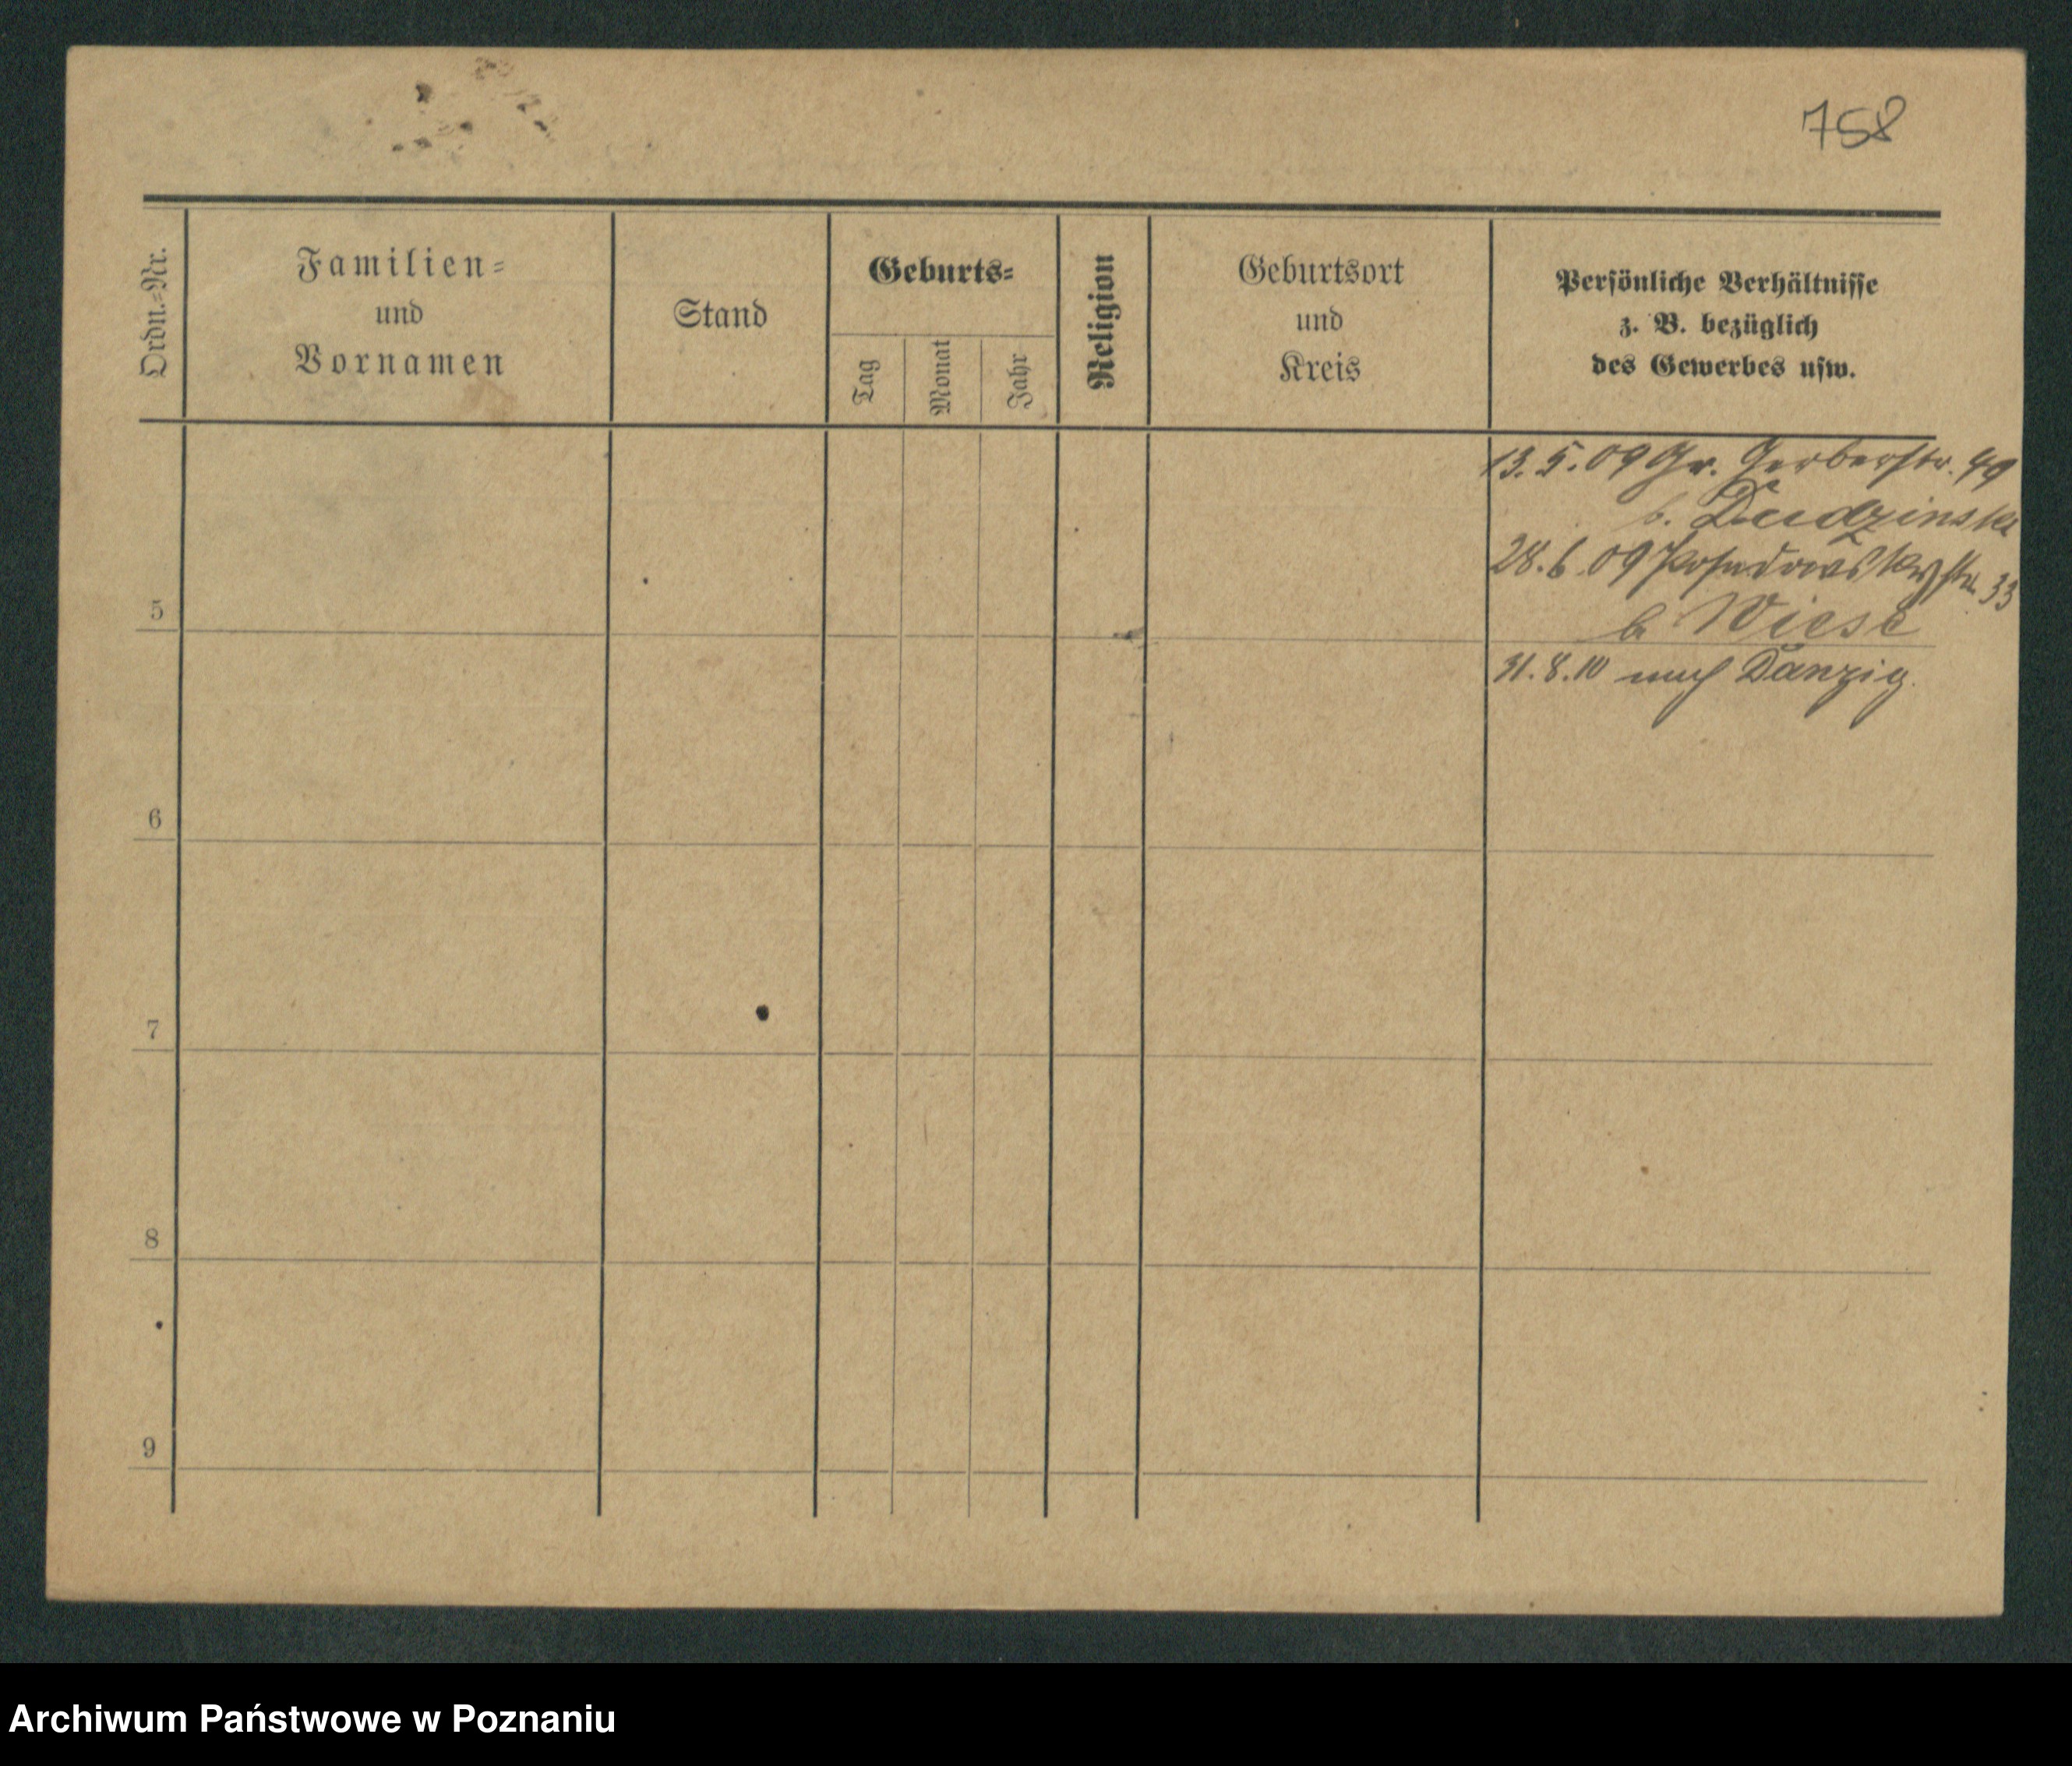 758
Ordn.-Nr.
Familien-
und
Vornamen
Stand
Geburts-
Tag
Monat
Jahr
Religion
Geburtsort
und
Kreis
Persönliche Verhältnisse
z. B. bezüglich
des Gewerbes usw.
13.5.09 Gr. Gerberstr. 49
b. Dudzinski
28.6.09 Posadowskystr. 33
5
b. Wiese
31.8.10 nach Danzig.
6
7
8
9
Archiwum Państwowe w Poznaniu